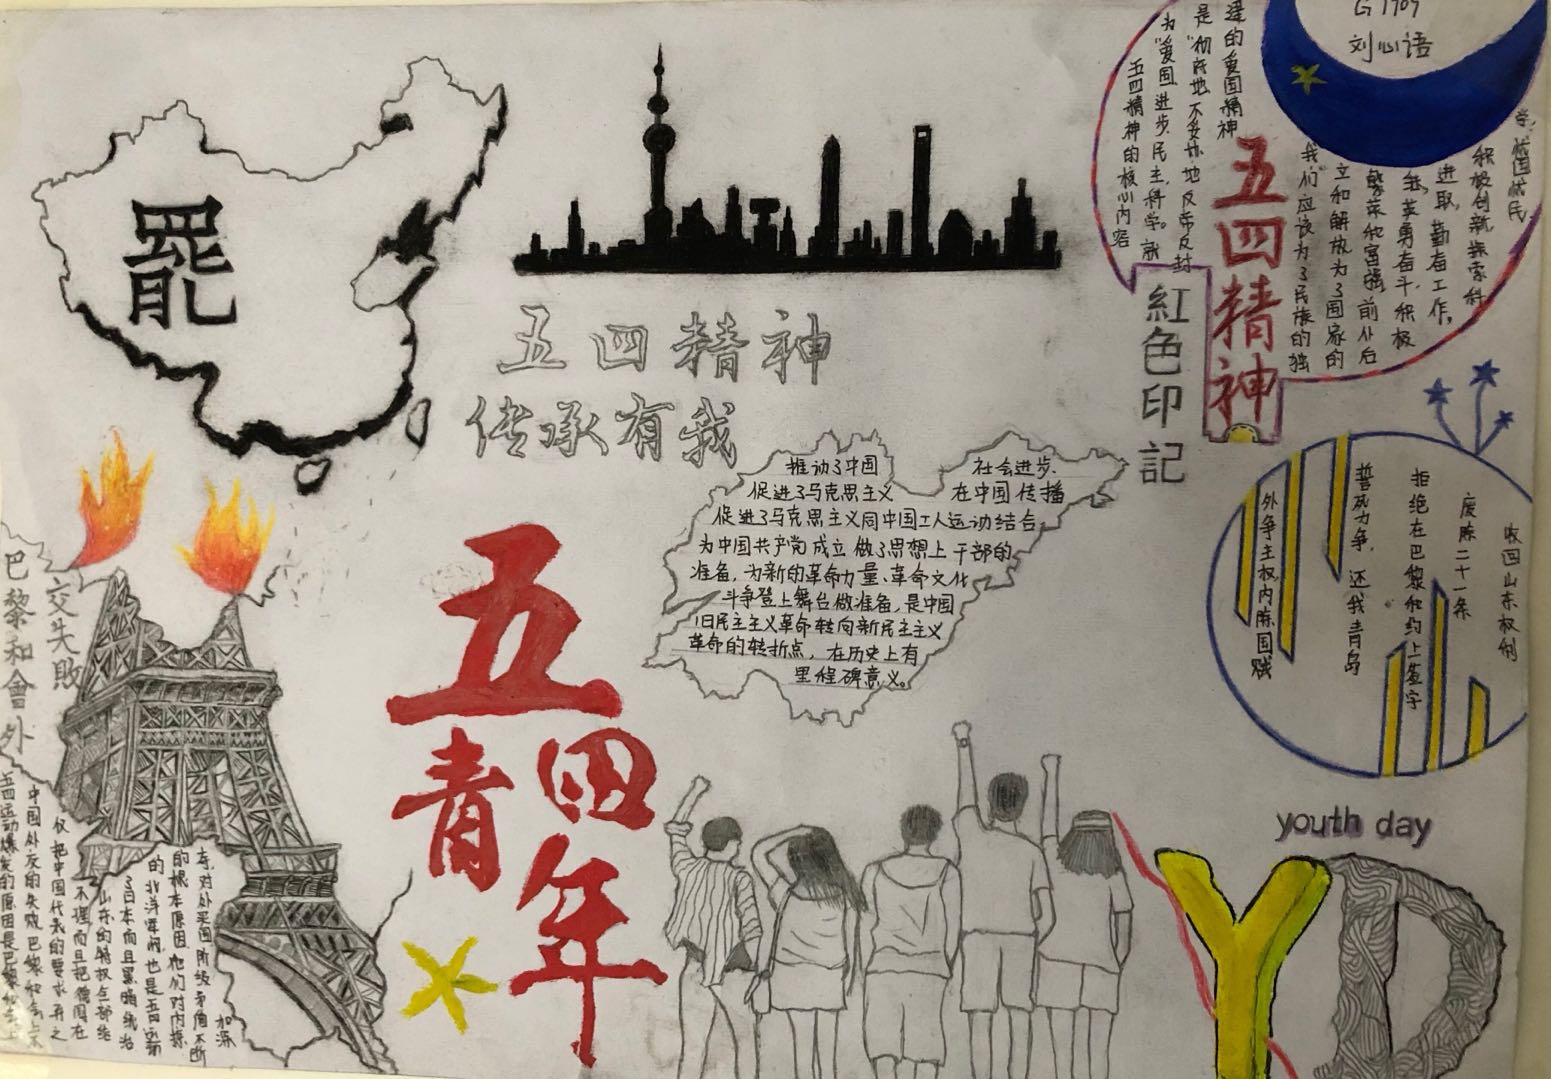 G1707
刘心语
罷
五四精神
传承有我
五四精神的核心内容
为“爱国、进步、民主、科学。就
是“彻底地不妥协地反帝反封
建的爱国精神
五四精神
紅色印記
我们应该为了民族的独
立和解放为了国家的
繁荣和富强前仆后
继,英勇奋斗,积极
进取,勤奋工作,
积极创新探索科
学,忧国忧民
推动了中国社会进步,
促进了马克思主义在中国传播
促进了马克思主义同中国工人运动结合
为中国共产党成立做了思想上干部的
准备,为新的革命力量、革命文化
斗争登上舞台做准备,是中国
旧民主主义革命转向新民主主义
革命的转折点,在历史上有
里程碑意义。
外争主权,内除国贼
誓死力争,还我青岛
拒绝在巴黎和约上签字
废除二十一条
收回山东权利
巴黎和會外
交失敗
五四运动爆发的原因是巴黎和会上
中国外交的失败,巴黎和会上不
仅把中国代表的要求弃之
不理,而且把德国在
山东的特权全部给
了日本,而且黑暗统治
的北洋军阀也是五四运动
的根本原因,他们对内镇
压,对外卖国,阶级矛盾不断
加深
五四
青年
youth day
YD